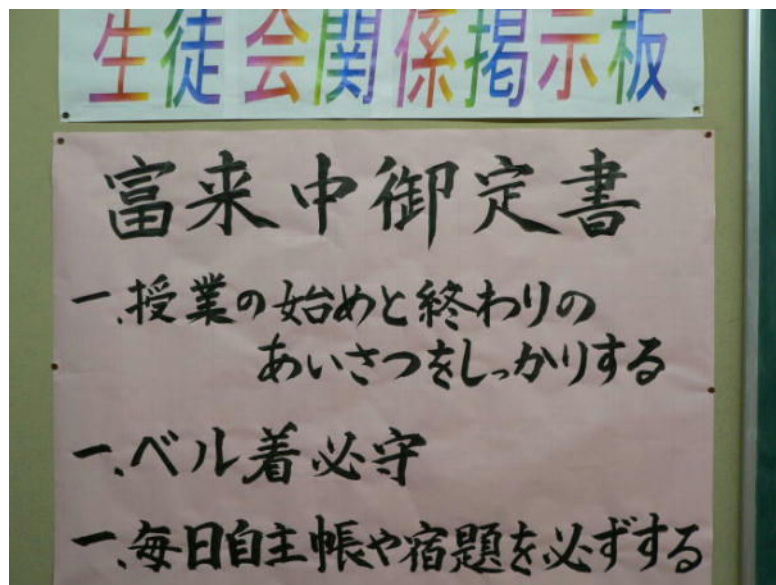 生徒会関係掲示板
富来中御定書
一、授業の始めと終わりの
あいさつをしっかりする
一、ベル着必守
一、毎日自主帳や宿題を必ずする